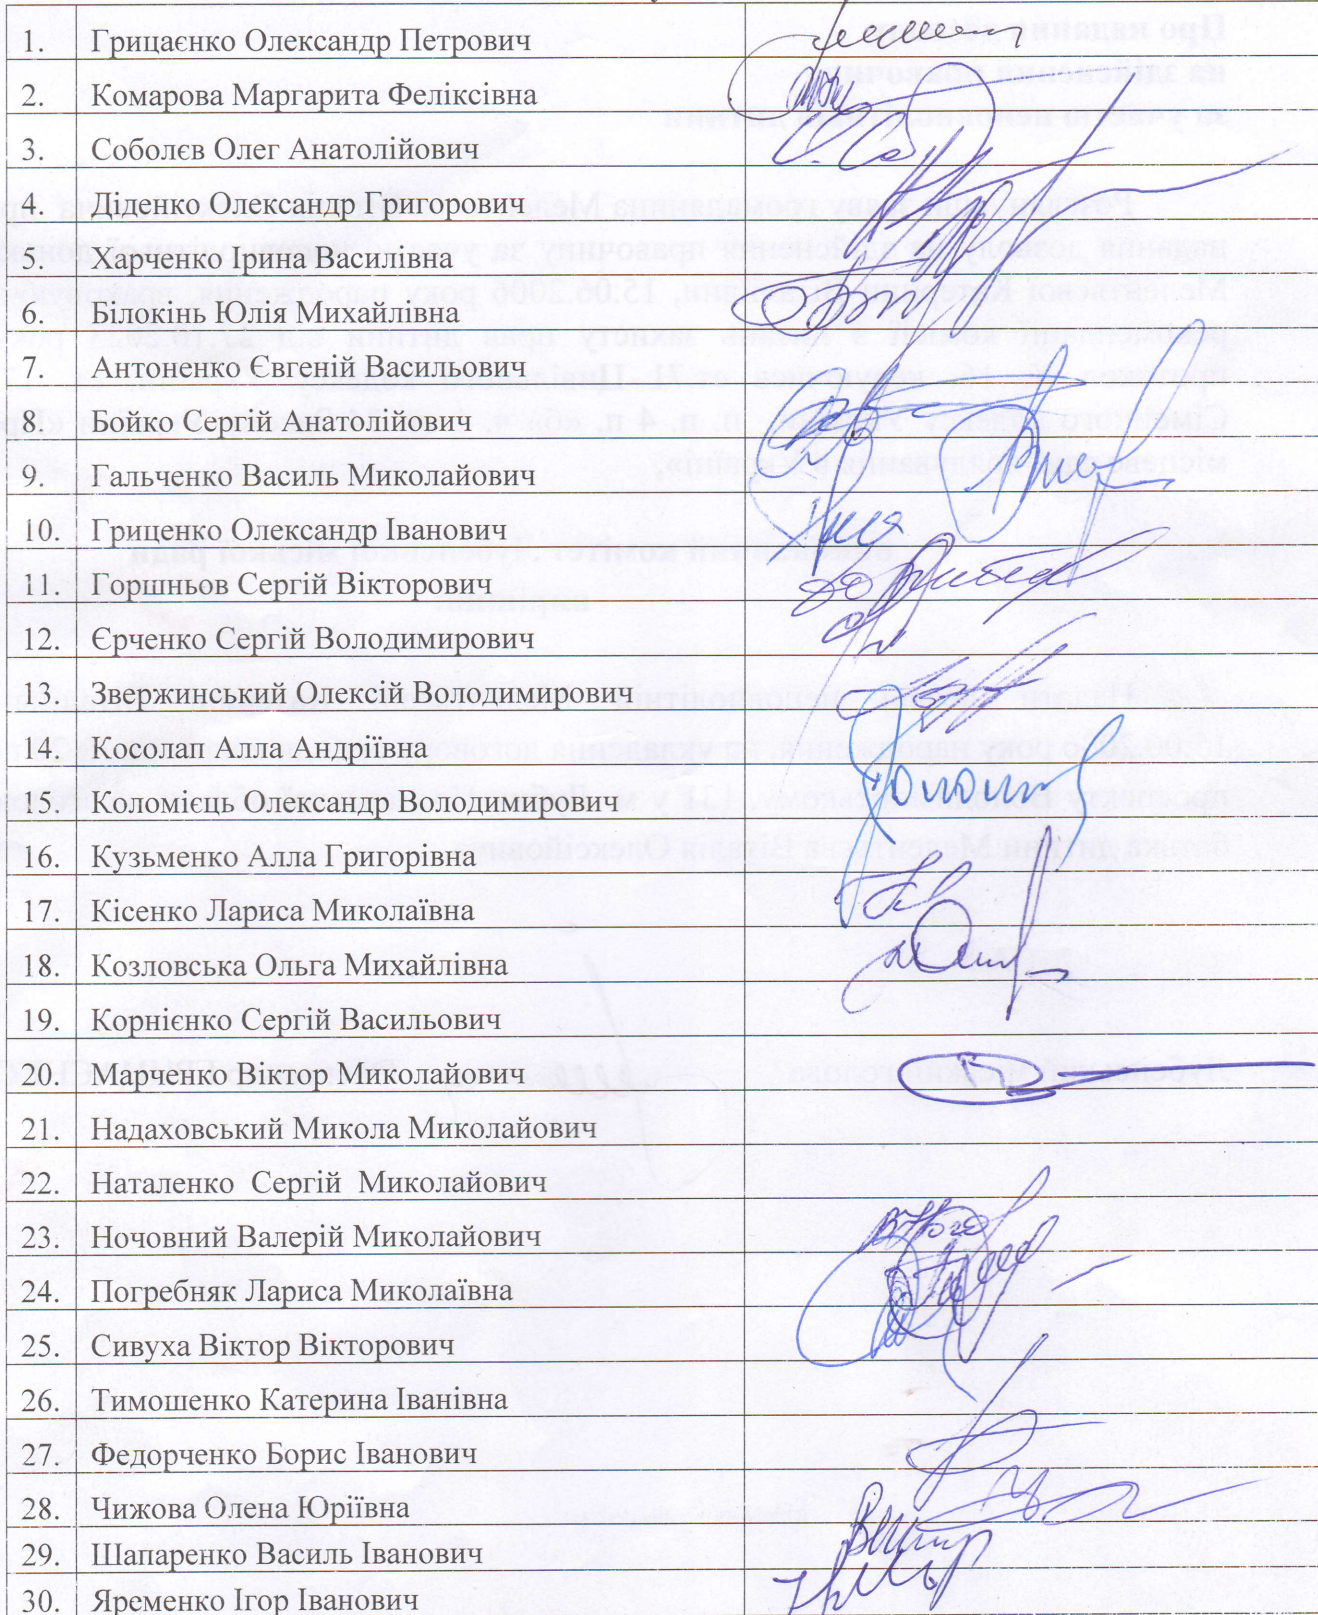 1. Грицаєнко Олександр Петрович
2. Комарова Маргарита Феліксівна
3. Соболєв Олег Анатолійович
4. Діденко Олександр Григорович
5. Харченко Ірина Василівна
6. Білокінь Юлія Михайлівна
7. Антоненко Євгеній Васильович
8. Бойко Сергій Анатолійович
9. Гальченко Василь Миколайович
10. Гриценко Олександр Іванович
11. Горшньов Сергій Вікторович
12. Єрченко Сергій Володимирович
13. Звержинський Олексій Володимирович
14. Косолап Алла Андріївна
15. Коломієць Олександр Володимирович
16. Кузьменко Алла Григорівна
17. Кісенко Лариса Миколаївна
18. Козловська Ольга Михайлівна
19. Корнієнко Сергій Васильович
20. Марченко Віктор Миколайович
21. Надаховський Микола Миколайович
22. Наталенко Сергій Миколайович
23. Ночовний Валерій Миколайович
24. Погребняк Лариса Миколаївна
25. Сивуха Віктор Вікторович
26. Тимошенко Катерина Іванівна
27. Федорченко Борис Іванович
28. Чижова Олена Юріївна
29. Шапаренко Василь Іванович
30. Яременко Ігор Іванович